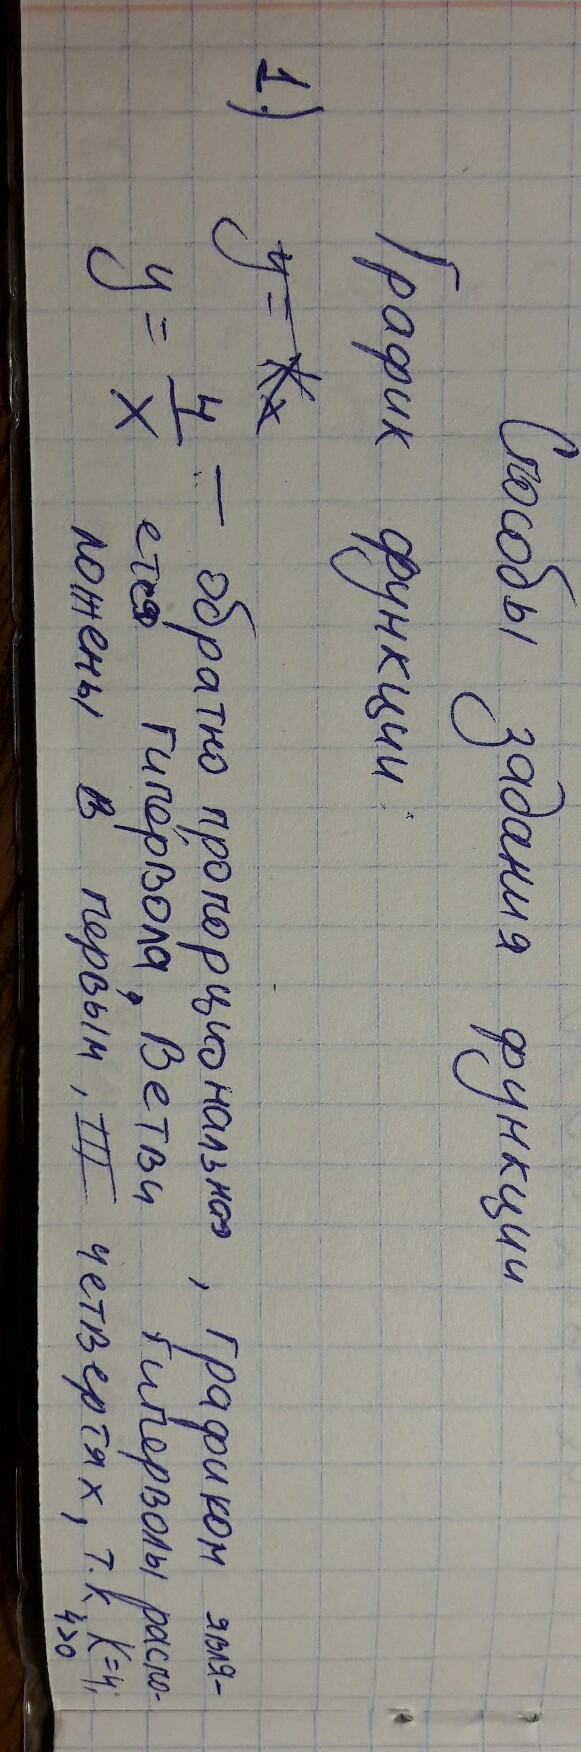 Способы задания функции
График функции
1) y = kx
y = 4/x — обратно пропорциональная, графиком явля-
ется гипервола, Ветви гиперволы распо-
ложены в первым, III четвертях, т.к. K=4,
4>0